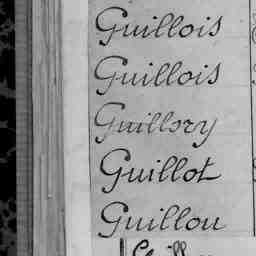 Guillois
Guillois
Guillory
Guillot
Guillou